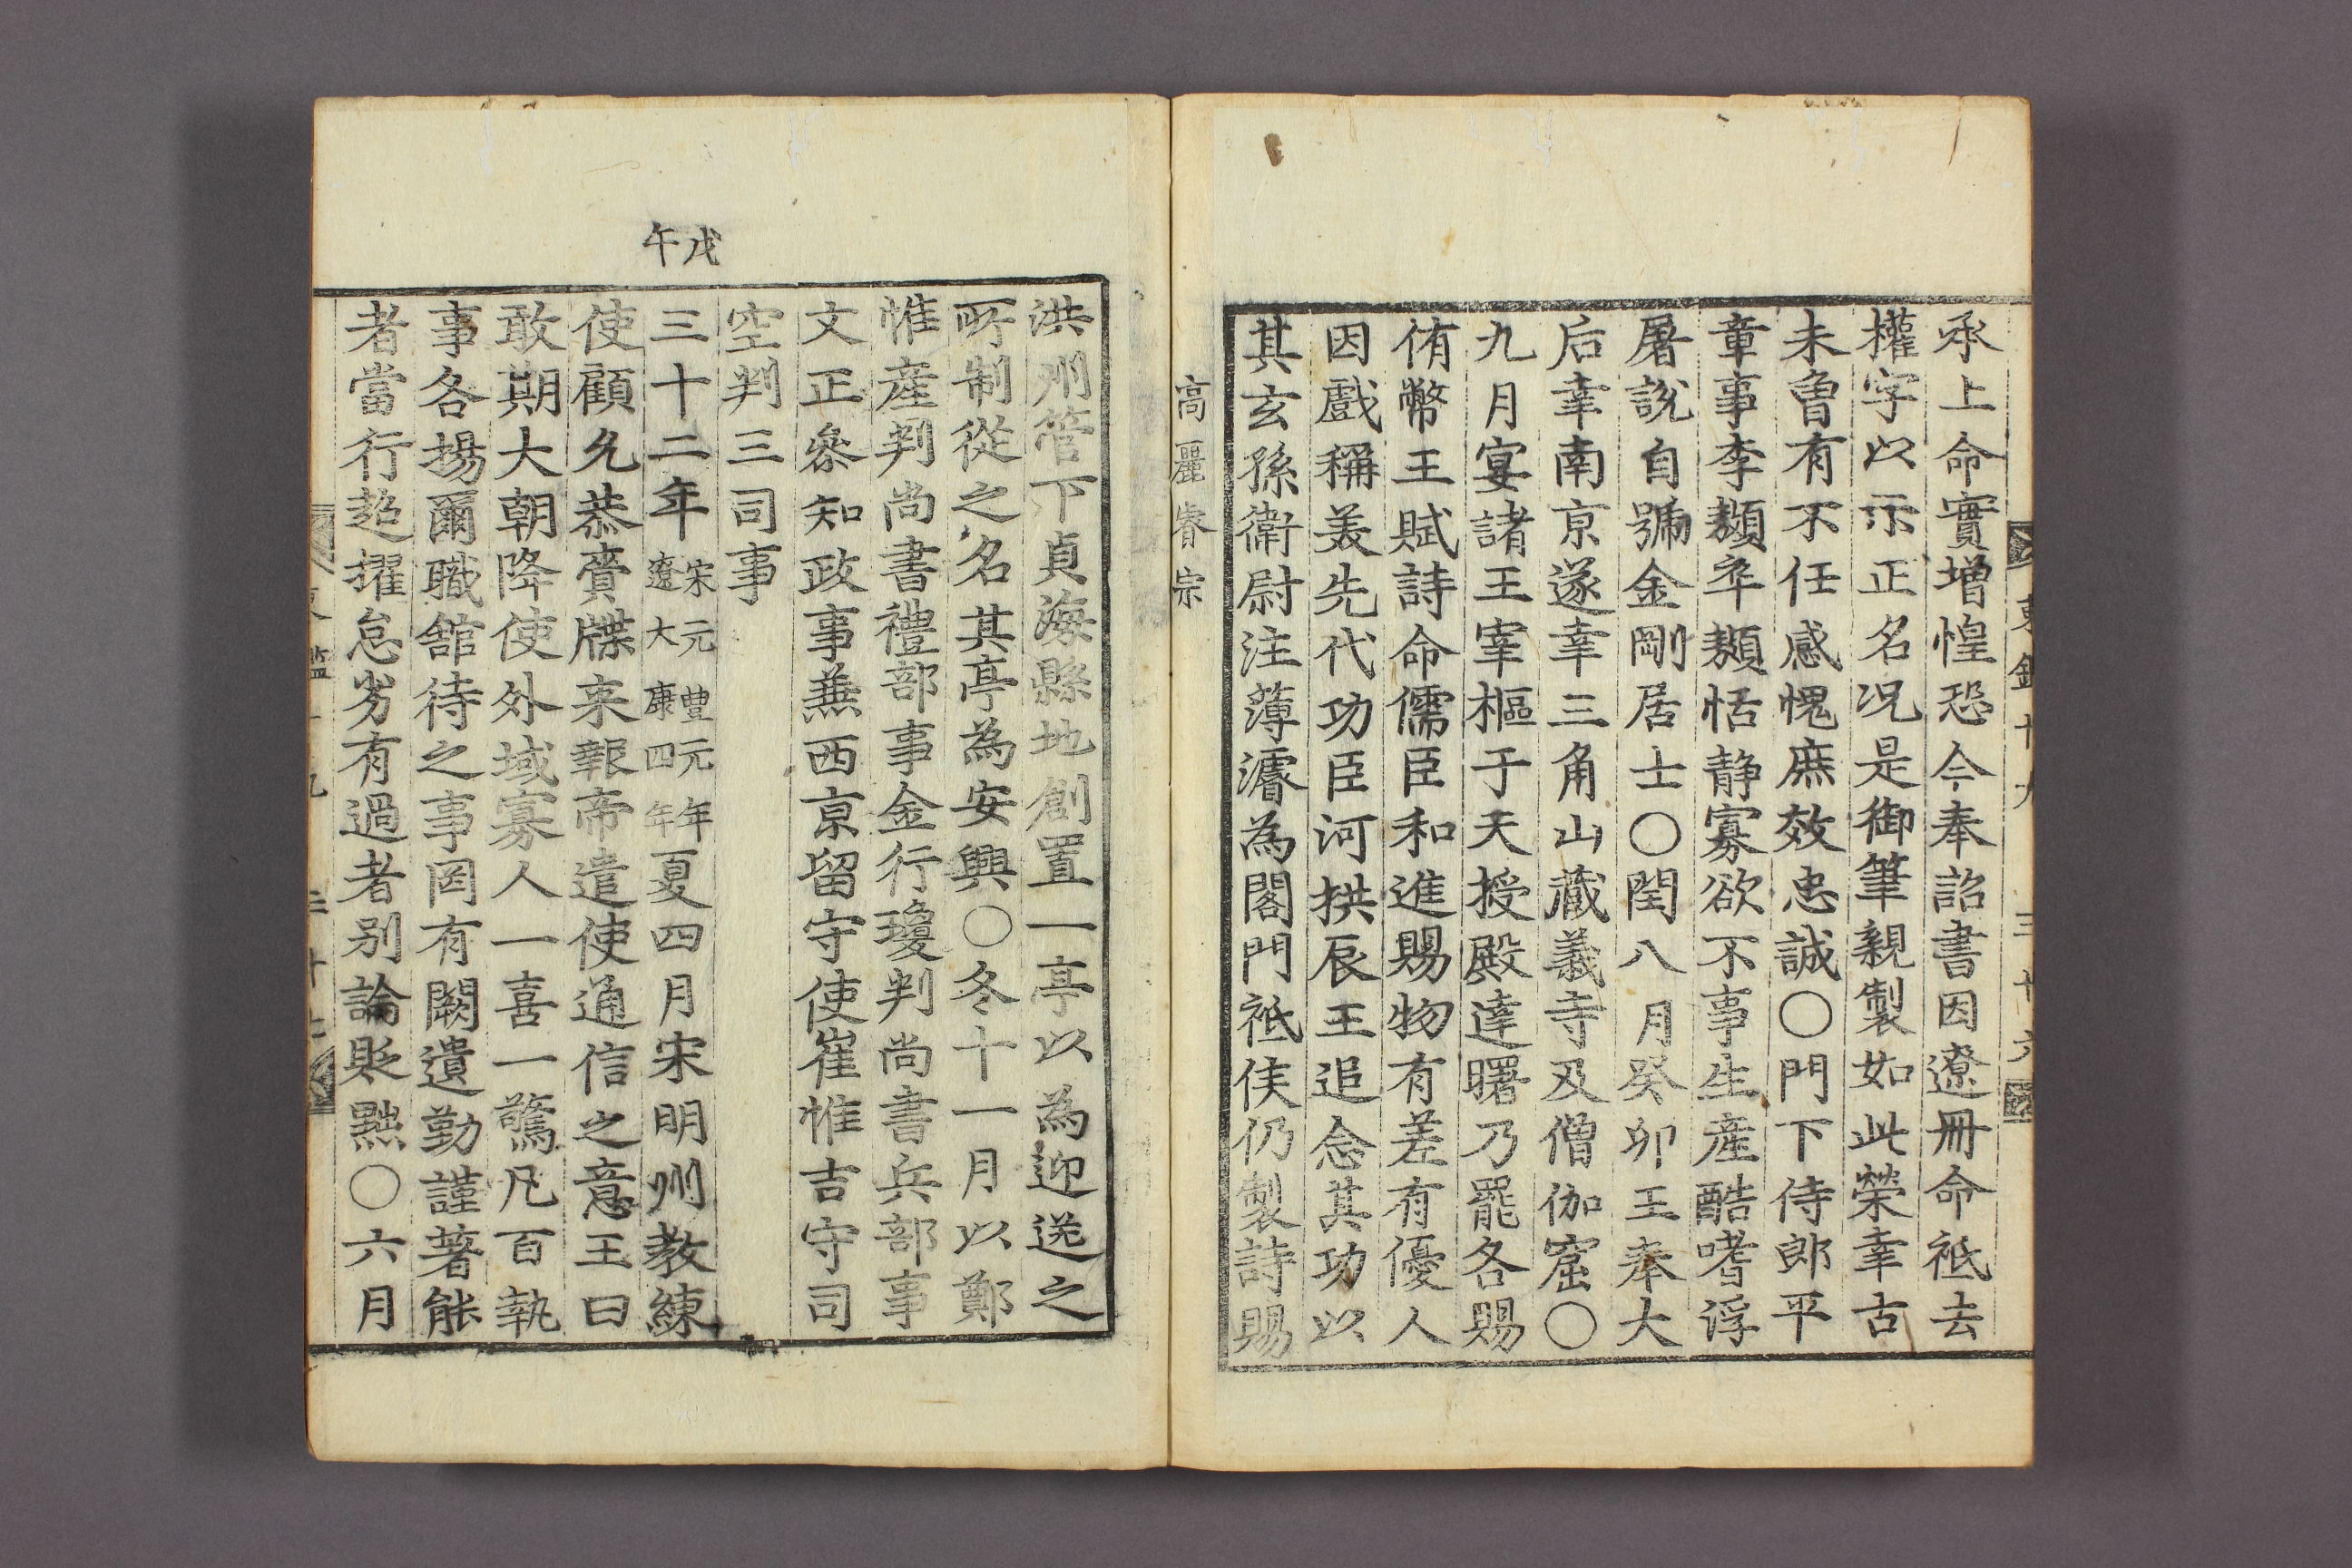 承上命實增惶恐今奉詔書因遼冊命祗去
權字以示正名况是御筆親製如此榮幸古
未曾有不任感愧庶效忠誠○門下侍郎平
章事李顥卒顥恬静寡欲不事生産酷嗜浮
屠說自號金剛居士○閏八月癸卯王奉大
后幸南京遂幸三角山藏義寺及僧伽窟○
九月宴諸王宰樞于天授殿達曙乃罷各賜
侑幣王賦詩命儒臣和進賜物有差有優人
因戲稱美先代功臣河拱辰王追念其功以
其玄孫衛尉注簿濬為閣門祗侯仍製詩賜
高麗睿宗
洪州管下貞海縣地創置一亭以為迎送之
所制從之名其亭為安興○冬十一月以鄭
惟産判尚書禮部事金行瓊判尚書兵部事
文正叅知政事兼西京留守使崔惟吉守司
空判三司事
戊午
三十二年宋元豊元年遼大康四年夏四月宋明州教練
使顧允恭賫牒来報帝遣使通信之意王曰
敢期大朝降使外域寡人一喜一驚凡百執
事各揚爾職舘待之事罔有闕遺勤謹著能
者當行超擢怠劣有過者别論貶黜○六月